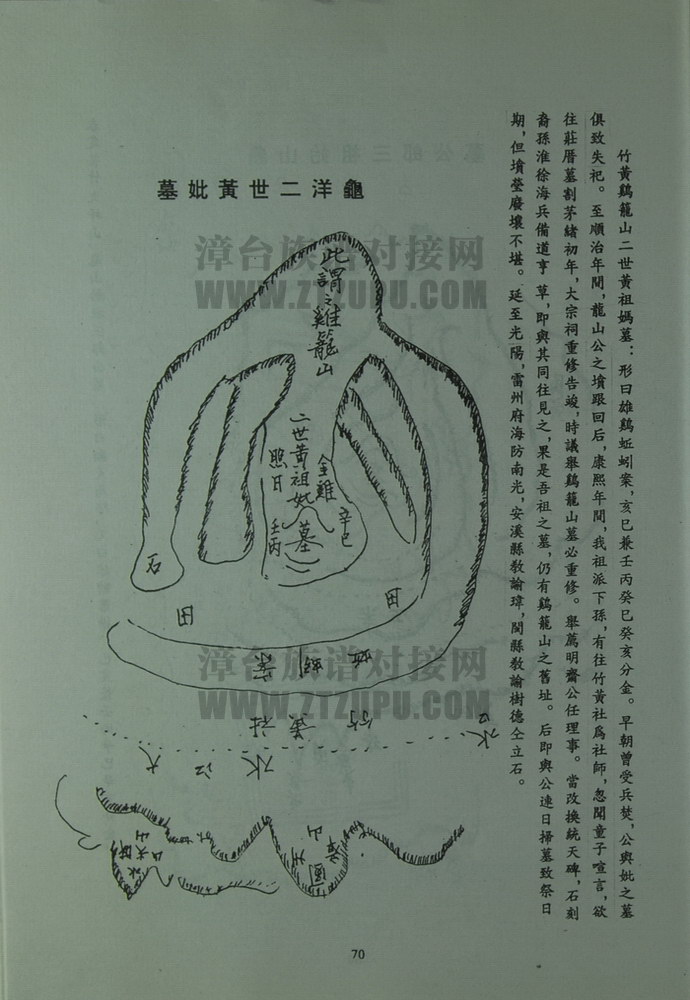 竹黃鷄籠山二世黃祖媽墓：形曰雄鷄蚯蚓案，亥巳兼壬丙癸巳癸亥分金。早朝曾受兵焚，公與妣之墓
俱致失祀。至順治年間，龍山公之墳跟回后，康熙年間，我祖派下孫，有往竹黃社爲社師，忽聞童子喧言，欲
往莊厝墓割茅緒初年，大宗祠重修告竣，時議舉鷄籠山墓必重修。舉薦明齋公任理事。當改換統天碑，石刻
裔孫淮徐海兵備道亨 草，即與其同往見之，果是吾祖之墓，仍有鷄籠山之舊址。后即與公連日掃墓致祭日
期，但墳塋廢壞不堪。延至光陽，雷州府海防南光，安溪縣敎諭瑋，閩縣敎諭樹德仝立石。
龜洋二世黃妣墓
此謂之雞籠山
二世黃祖妣墓
金雞
照日
辛巳
壬丙
石
田
田
蚯蚓案
竹黃社
水口
水江大
漳台族谱对接网
WWW.ZTZUPU.COM
漳台族谱对接网
WWW.ZTZUPU.COM
70